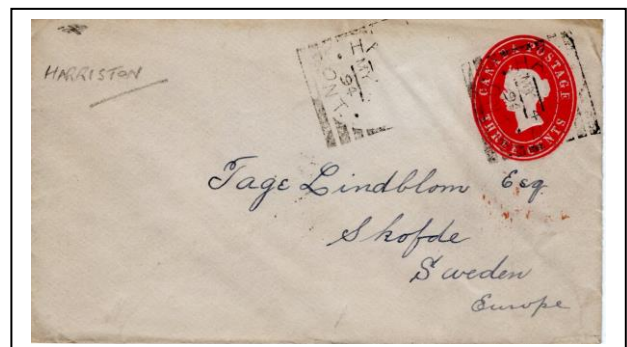 HARRISTON
CANADA POSTAGE
THREE CENTS
ONT.
94
Tage Lindblom Esq
Skofde
Sweden
Europe